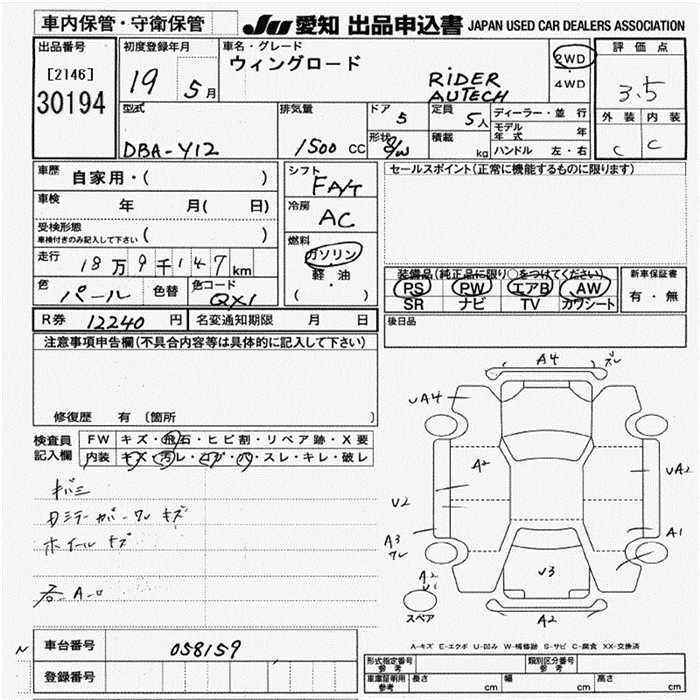 車内保管・守衛保管
JU 愛知 出品申込書 JAPAN USED CAR DEALERS ASSOCIATION
出品番号
[2146]
30194
初度登録年月
19 5月
車名・グレード
ウィングロード
RiDER
AUTECH
2WD
・
4WD
評価点
3.5
外装 内装
C C
型式
DBA-Y12
排気量
1500 CC
ドア
5
形状
定員
5人
積載
kg
ディーラー・並 行
モデル年式 年
ハンドル 左・右
車歴 自家用・( )
車検 年 月( 日)
受検形態
車検付きのみ記入して下さい ( )
走行 18万9千147km
色 パール 色替 色コード QX1
シフト
FA/T
冷房
AC
燃料
ガソリン
軽・油
( )
セールスポイント(正常に機能するものに限ります)
装備品(純正品に限り○をつけてください)
PS PW エアB AW
SR ナビ TV カワシート
新車保証書
有・無
R券 12240 円 名変通知期限 月 日
後日品
注意事項申告欄(不具合内容等は具体的に記入して下さい)
修復歴 有 〔箇所 〕
検査員
記入欄
FW キズ・飛石・ヒビ割・リペア跡・X要
内装 キズ・汚レ・コゲ・穴・スレ・キレ・破レ
キバミ
ホイール キズ
A4
ズレ
UA4
A2
UA2
U2
A3
ワレ
A1
A2
U1
U3
スペア
A2
A-キズ E-エクボ U-凹み W-補修跡 S-サビ C-腐食 XX-交換済
N
車台番号 058159
登録番号
形式指定番号
参考
類別区分番号
参考
車庫証明用
参考
長さ cm 幅 cm 高さ cm